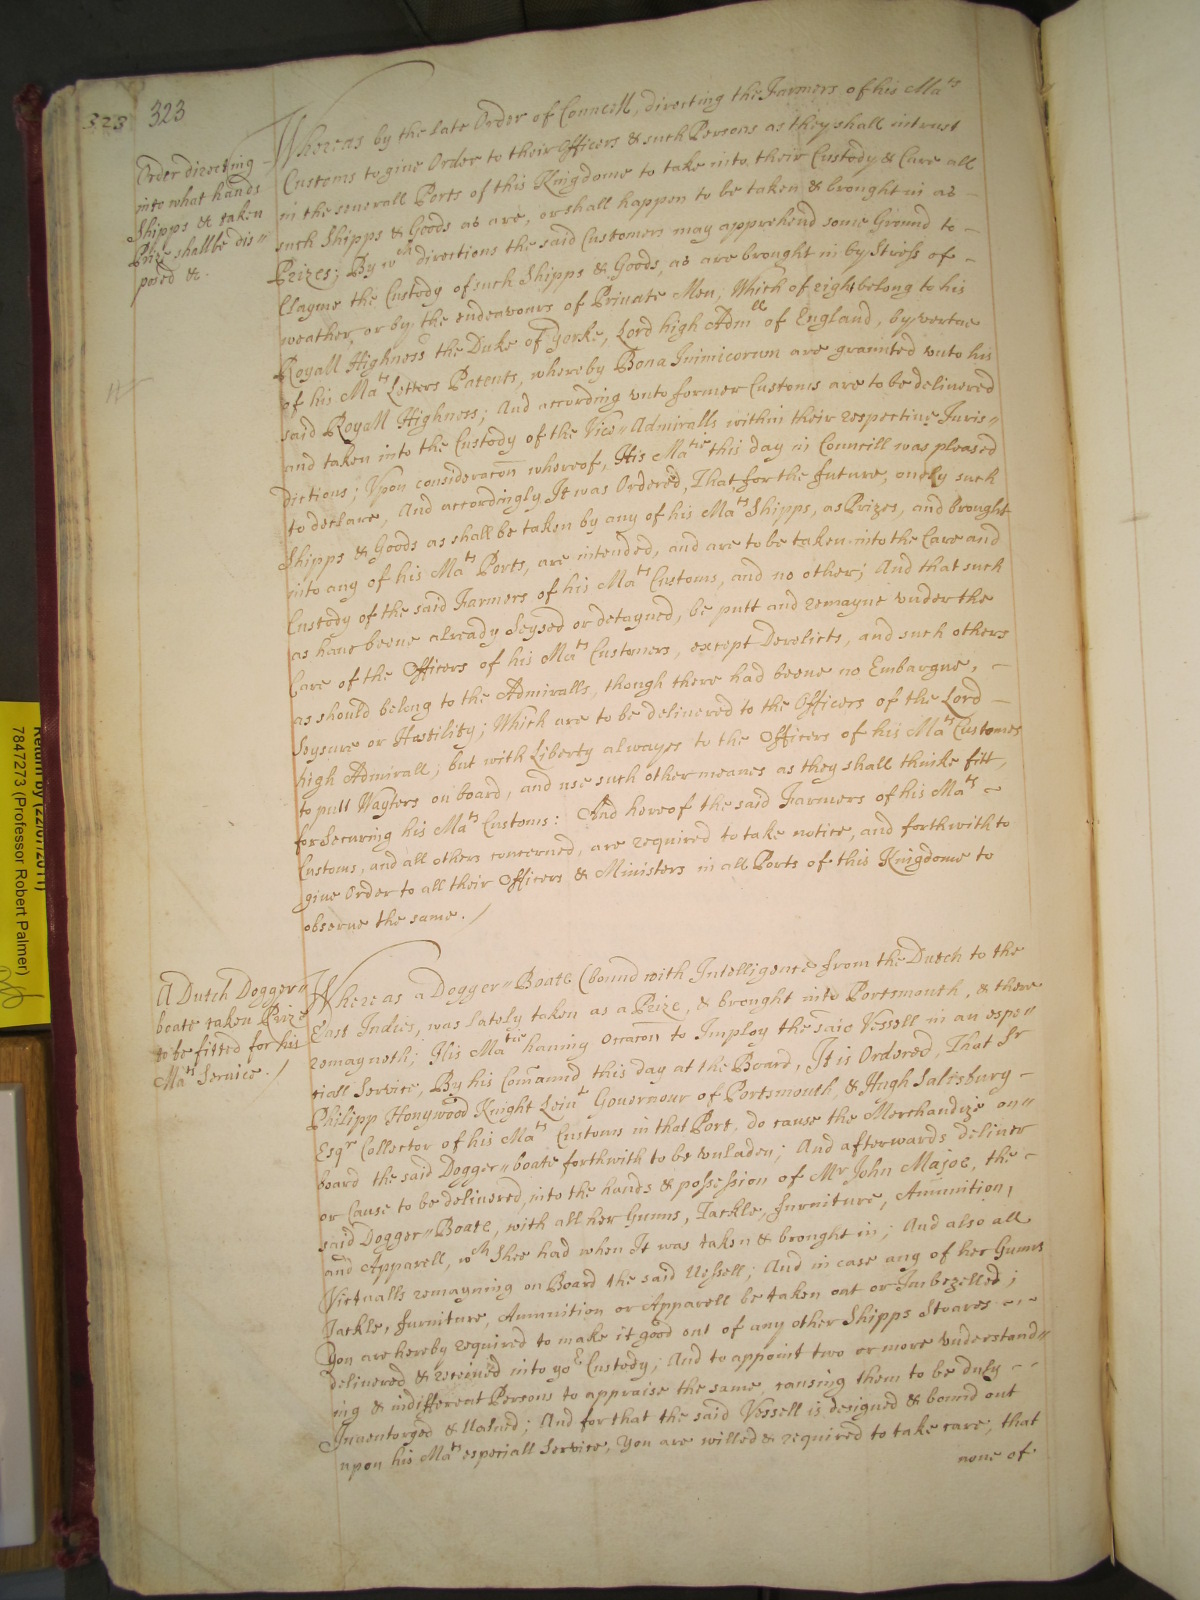 323
323
Order directing
into what hands
Shipps & taken
Prize shall be dis"
posed &c.
Whereas by the late Order of Councell, directing the Farmers of his Mats
Customs to give Order to their Officers & such Persons as they shall intrust
in the severall Ports of this Kingdome to take into their Custody & Care all
such Shipps & Goods as are, or shall happen to be taken & brought in as -
Prizes; By wch directions the said Customers may apprehend some Ground to -
Clayme the Custody of such Shipps & Goods, as are brought in by Stress of -
weather, or by the endeavours of Private Men, Which of right belong to his
Royall Highness the Duke of Yorke, Lord high Admll of England, by vertue
of his Mats Letters Patents, whereby Bona Inimicorum are graunted unto his
said Royall Highness; And according unto former Customs are to be delivered
and taken into the Custody of the Vice" Admiralls within their respective Juris"
dictions; Upon consideracon whereof, His Matie this day in Councill was pleased
to declare, And accordingly It was Ordered, That for the future, onely such
Shipps & Goods as shall be taken by any of his Mats Shipps, as Prizes, and brought
into any of his Mats Ports, are intended, and are to be taken into the Care and
Custody of the said Farmers of his Mats Customs, and no other; And that such
as have beene already Seysed or detayned, be putt and remayne under the
Care of the Officers of his Mats Customers, except Derelicts, and such others
as should belong to the Admiralls, though there had beene no Embargue, -
Seysure or Hostility; Which are to be delivered to the Officers of the Lord -
high Admirall; but with Liberty alwayes to the Officers of his Mats Customes
to putt Wayters on board, and use such other meanes as they shall thinke fitt,
for Securing his Mats Customs: And hereof the said Farmers of his Mats -
Customs, and all others concerned, are required to take notice, and forthwith to
give Order to all their Officers & Ministers in all Ports of this Kingdome to
observe the same. /
A Dutch Dogger"
boate taken Prize
to be fitted for his
Mats Service. /
Whereas a Dogger" Boate (bound with Intelligence from the Dutch to the
East Indies, was lately taken as a Prize, & brought into Portsmouth, & there
remayneth; His Matie having occacon to Imploy the said Vessell in an espe"
ciall Service, By his Comand this day at the Board, It is Ordered, That Sr
Philipp Honywood Knight Leiut Governour of Portsmouth, & Hugh Salisbury -
Esqr Collector of his Mats Customs in that Port, do cause the Merchandize on"
board the said Dogger" boate forthwith to be unladen; And afterwards deliver
or Cause to be delivered, into the hands & possession of Mr John Major, the -
said Dogger" Boate, with all her Gunns, Tackle, furniture, Amunition,
and Apparell, wch Shee had when It was taken & brought in; And also all
Victualls remayning on Board the said Vessell; And in case any of her Gunns
Tackle, furniture, Amunition or Apparell be taken out or Imbezelled;
You are hereby required to make it good out of any other Shipps Stoares - - -
delivered & received into yor Custody; And to appoint two or more understand"
ing & indifferent Persons to appraise the same, causing them to be duly - -
Inventoryed & Valued; And for that the said Vessell is designed & bound out
upon his Mats especiall Service, You are willed & required to take care, that
none of
Return by (22/07/2011)
7847273 (Professor Robert Palmer)